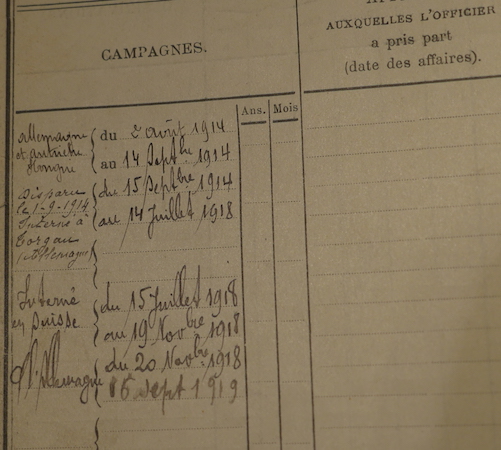 AUXQUELLES L'OFFICIER
a pris part
(date des affaires).
CAMPAGNES.
Ans. Mois
Allemagne
et autriche
Hongrie
du 2 août 1914
au 14 Septbre 1914
Disparu
le 1-9-1914
Interné à
Torgau
(Allemagne)
du 15 Septbre 1914
au 14 Juillet 1918
Interné
en Suisse
du 15 Juillet 1918
au 19 Novbre 1918
Allemagne
du 20 Novbre 1918
Sept 1919